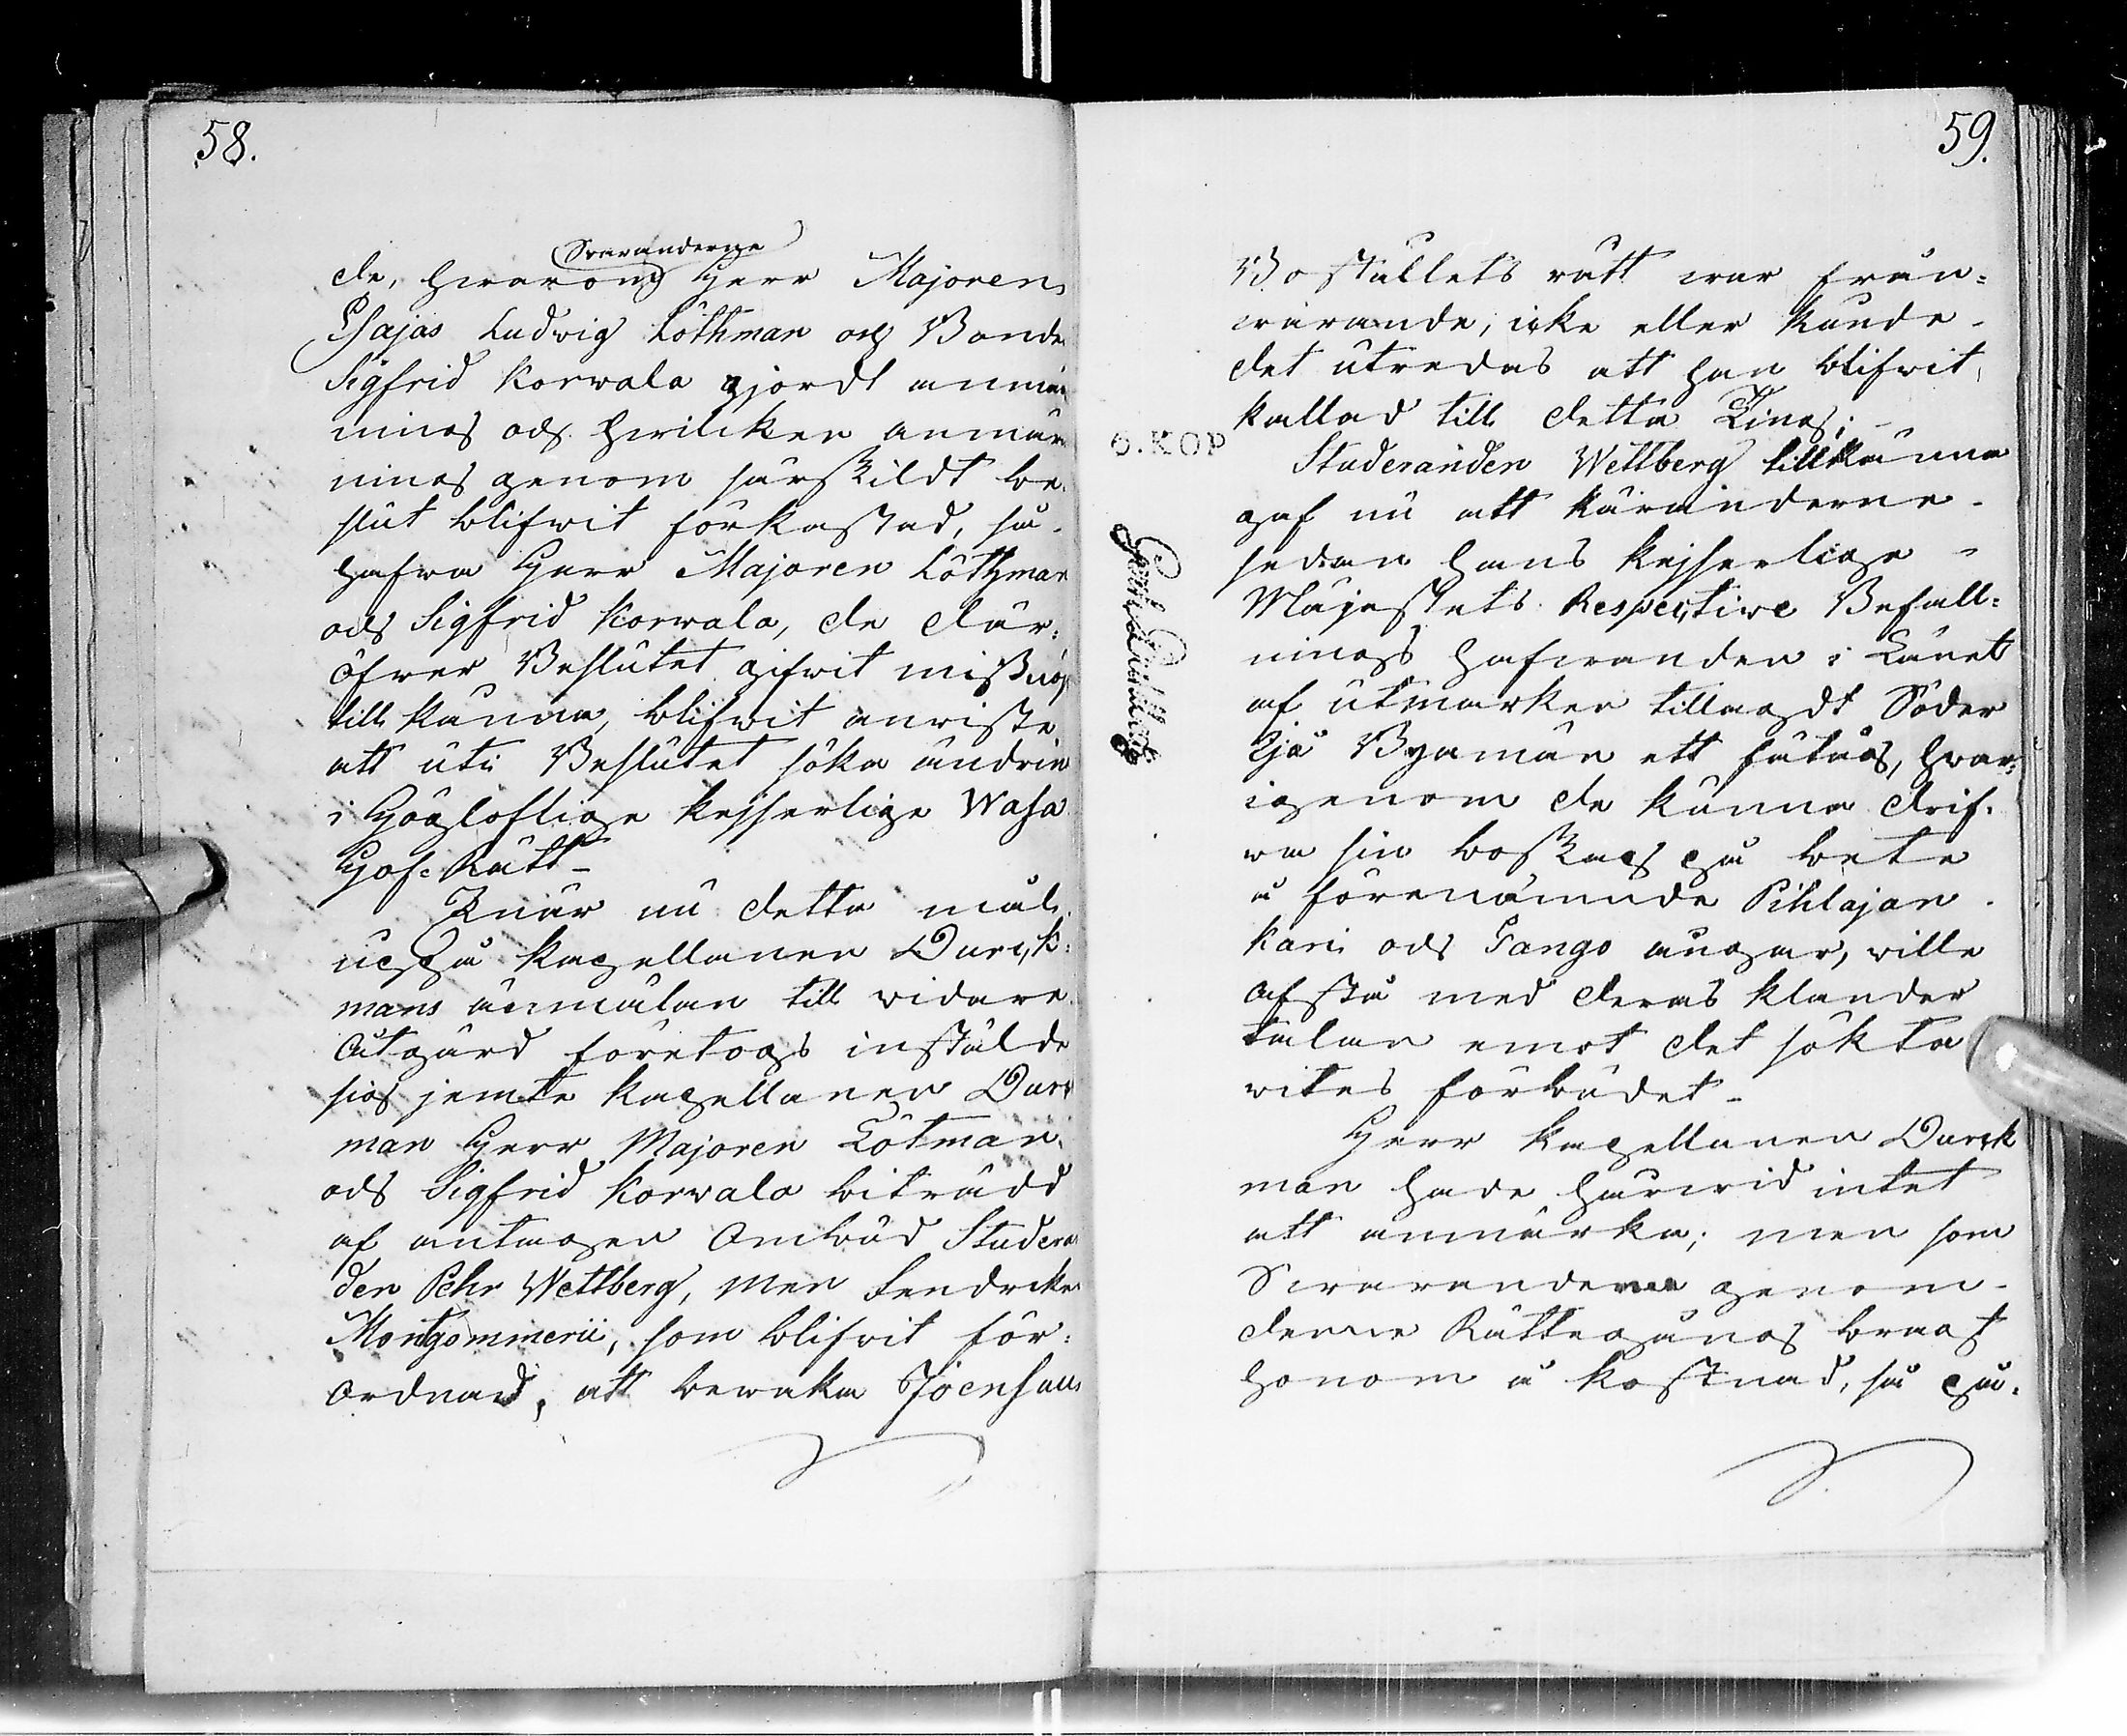 58.
Svaranderne
de, hwarom Herr Majoren
Esajas Ludvig Löthman och Bonden
Sigfrid Korwala gjordt anmärk
ning och hwilcken anmärk
ning genom särskildt be
slut blifwit förkastad, så
hafwa Herr Majoren Löthman
och Sigfrid Korwala, de der-
öfwer Beslutet gifwit missnöje
till känna, blifwit anwiste
att uti Beslutet söka ändring
i Höglofliga Kejserliga Wasa
Hof-Rätt-
När nu detta mål
uppå Kapellanen Durck-
mans anmälan till widare
åtgärd företogs instälde
sig jemte Kapellanen Durck
man Herr Majoren Lötman
och Sigfrid Korwala biträdd
af antagen Ombud Studeran
den Pehr Wettberg, men Fendricken
Montgommerii, som blifwit för-
ordnad, att bewaka Joensuu
59.
Boställets rätt war från-
warande, icke eller kunde
det utredas att han blifwit
kallad till detta Ting;
6. KOP
Studeranden Wettberg tillkänna
gaf nu att Käranderne
sedan Hans Kejserliga
Majestets Respective Befall-
ningshafwanden i Länet
af utmarken tillagdt Söder
Eja Byamän ett fätåg, hwar-
igenom de kunna drif-
wa sin boskap på bete
å förenämnde Pihlajan
kari och Tango ängar, wille
afstå med deras klander
talan emot det sökta
wites förbudet-
Herr Kapellanen Durck
man hade härwid intet
att anmärka; men som
Swaranderne genom
denne Rättegång bragt
honom å kostnad, så på-